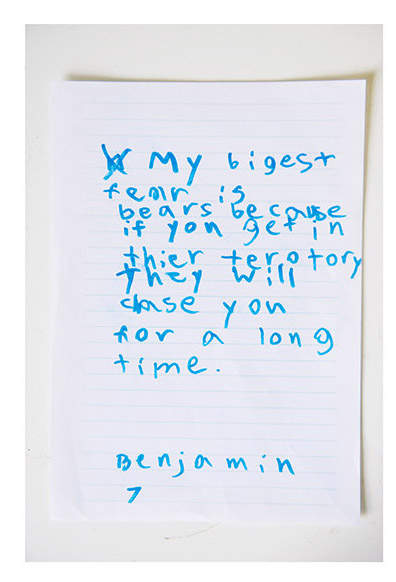 My bigest
fear is
bears because
if you get in
thier terotory
they will
chase you
for a long
time.
Benjamin
7